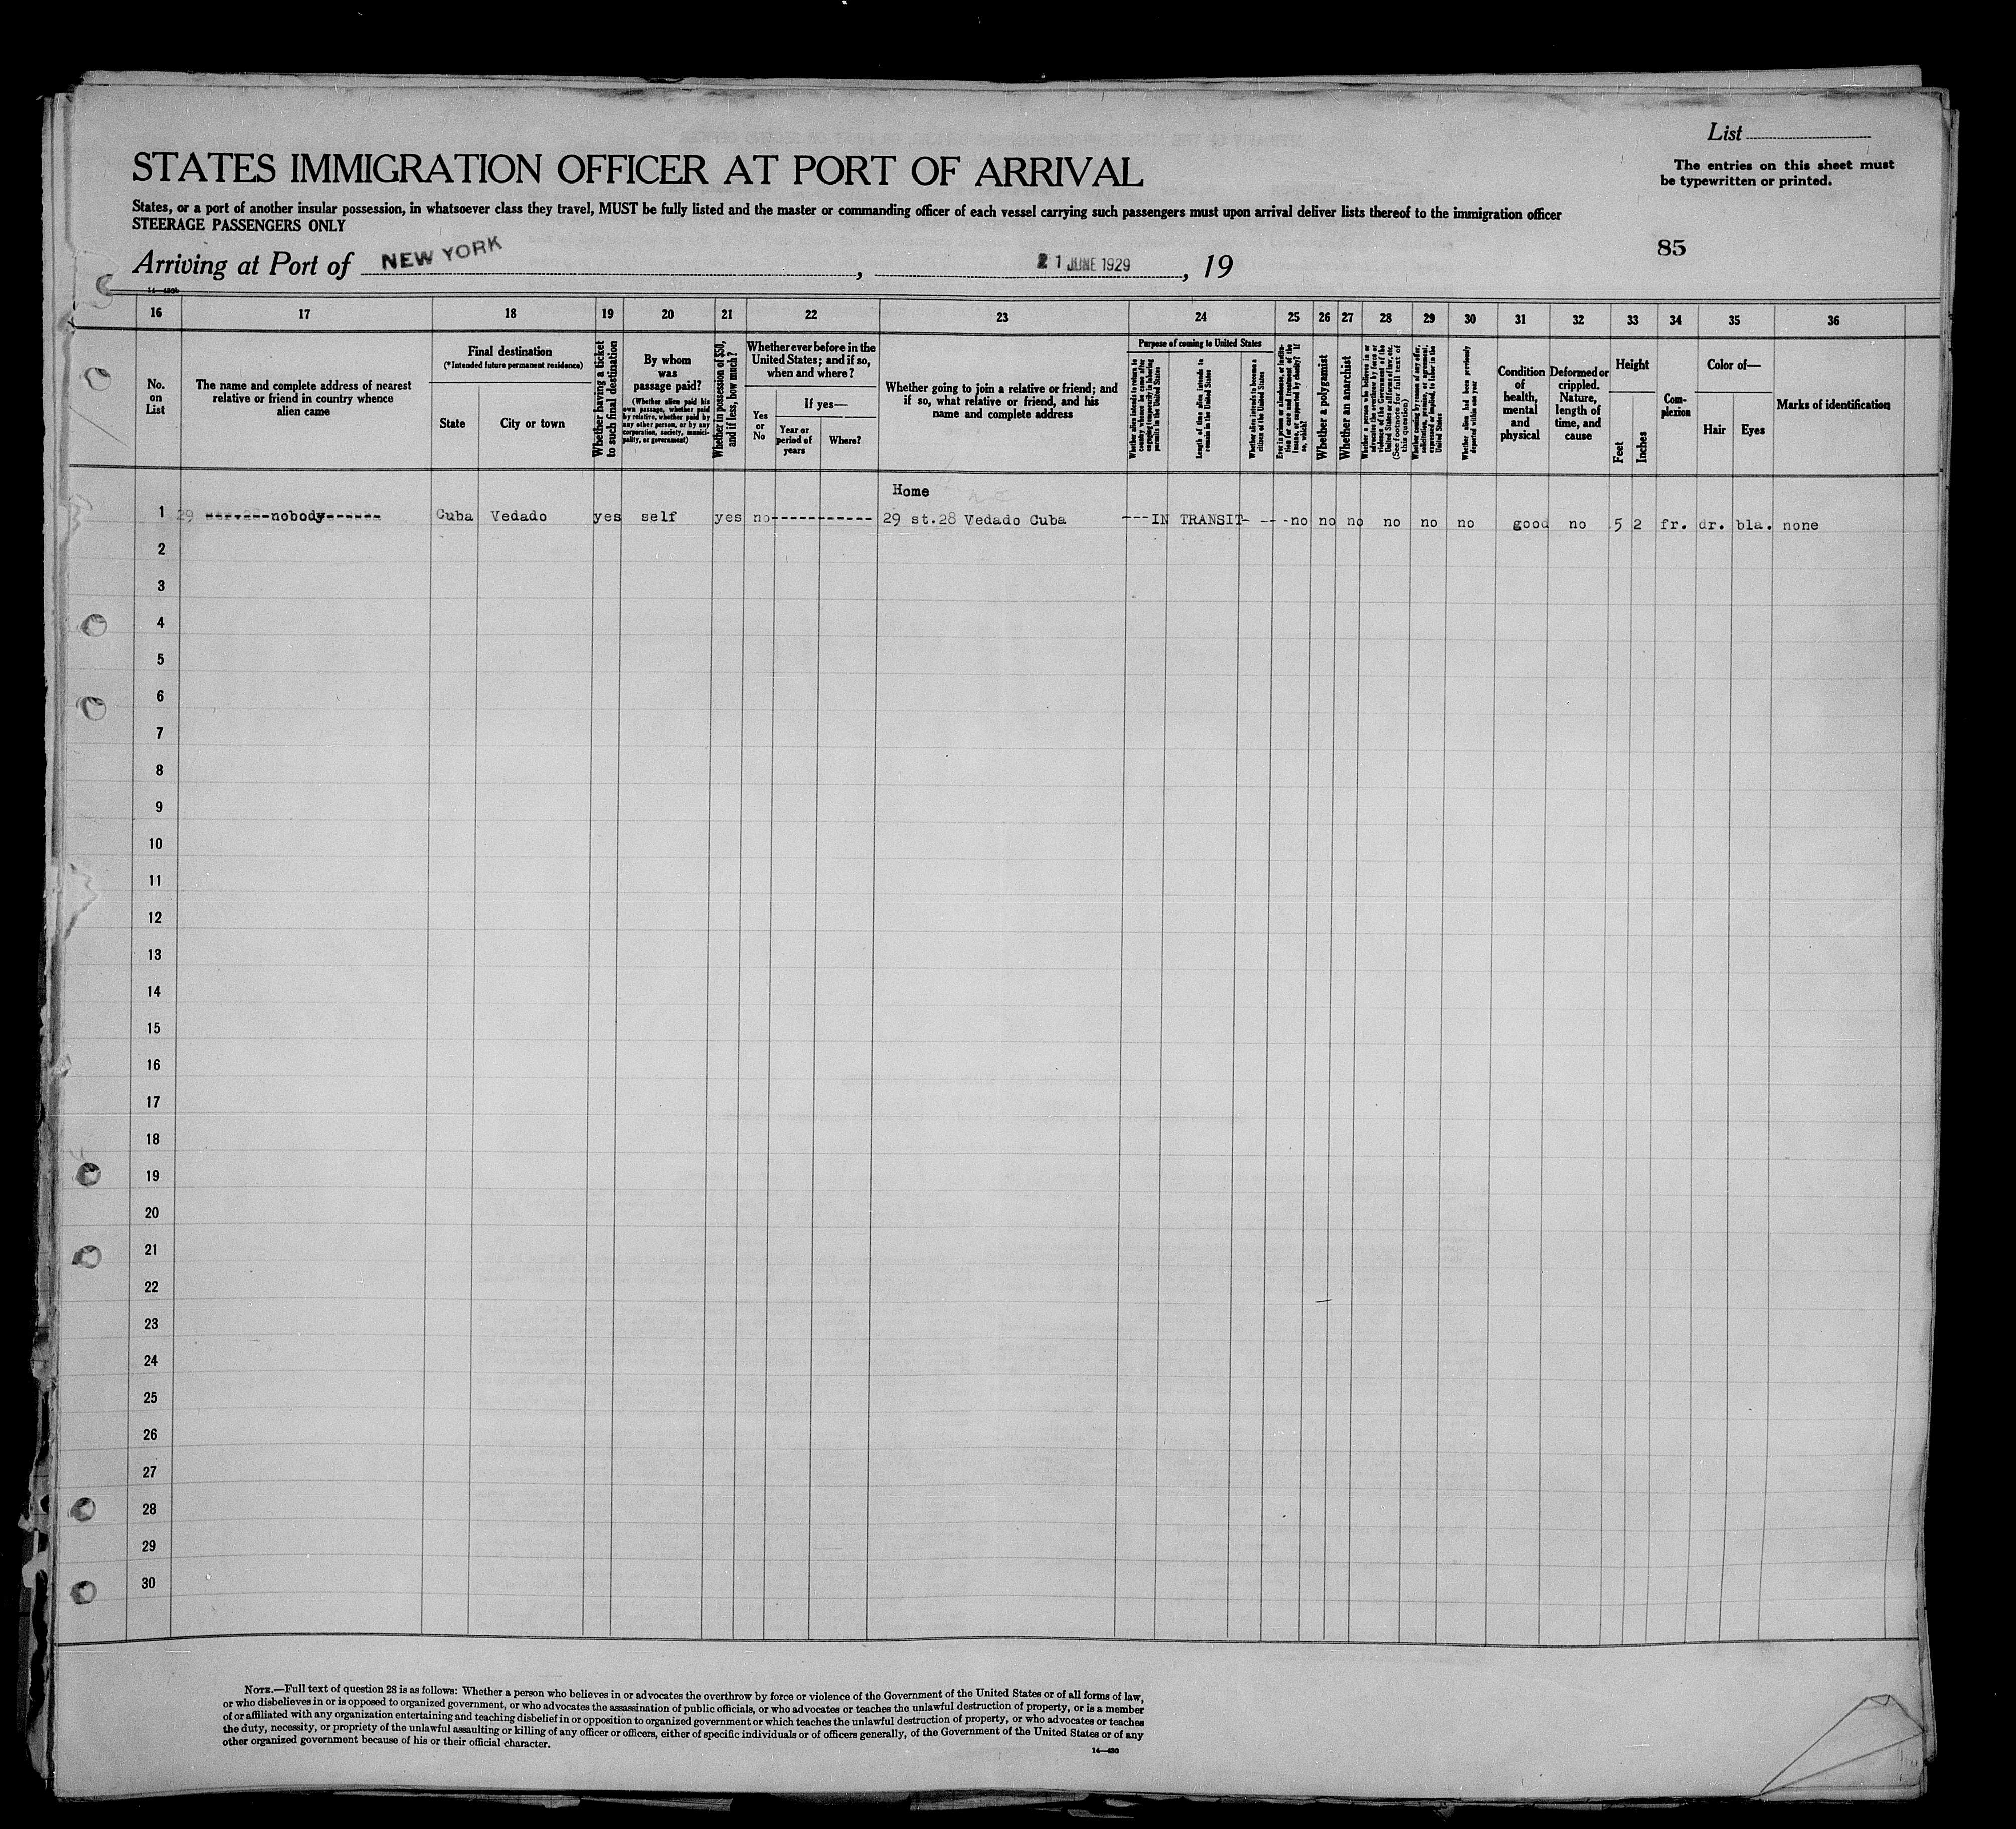 List
The entries on this sheet must
be typewritten or printed.
STATES IMMIGRATION OFFICER AT PORT OF ARRIVAL
States, or a port of another insular possession, in whatsoever class they travel, MUST be fully listed and the master or commanding officer of each vessel carrying such passengers must upon arrival deliver lists thereof to the immigration officer
STEERAGE PASSENGERS ONLY
85
Arriving at Port of NEW YORK, 21 JUNE 1929, 19
14—430b
16 17 18 19 20 21 22 23 24 25 26 27 28 29 30 31 32 33 34 35 36
No.
on
List
The name and complete address of nearest
relative or friend in country whence
alien came
Final destination
(*Intended future permanent residence)
State
City or town
Whether having a ticket
to such final destination
By whom
was
passage paid?
(Whether alien paid his
own passage, whether paid
by relative, whether paid by
any other person, or by any
corporation, society, munici-
pality, or government)
Whether in possession of $50,
and if less, how much?
Whether ever before in the
United States; and if so,
when and where?
Yes
or
No
If yes—
Year or
period of
years
Where?
Whether going to join a relative or friend; and
if so, what relative or friend, and his
name and complete address
Purpose of coming to United States
Whether alien intends to return to
country whence he came after
engaging temporarily in laboring
pursuits in the United States
Length of time alien intends to
remain in the United States
Whether alien intends to become a
citizen of the United States
Ever in prison or almshouse, or institu-
tion for care and treatment of the
insane, or supported by charity? If
so, which?
Whether a polygamist
Whether an anarchist
Whether a person who believes in or
advocates the overthrow by force or
violence of the Government of the
United States or all forms of law, etc.
(See footnote for full text of
this question)
Whether coming by reason of any offer,
solicitation, promise, or agreement,
expressed or implied, to labor in the
United States
Whether alien had been previously
deported within one year
Condition
of
health,
mental
and
physical
Deformed or
crippled.
Nature,
length of
time, and
cause
Height
Feet
Inches
Com-
plexion
Color of—
Hair
Eyes
Marks of identification
Home
1 29 ------nobody------ Cuba Vedado yes self yes no----------- 29 st.28 Vedado Cuba ---IN TRANSIT- -- -no no no no no no good no 5 2 fr. dr. bla. none
2
3
4
5
6
7
8
9
10
11
12
13
14
15
16
17
18
19
20
21
22
23
24
25
26
27
28
29
30
NOTE.—Full text of question 28 is as follows: Whether a person who believes in or advocates the overthrow by force or violence of the Government of the United States or of all forms of law,
or who disbelieves in or is opposed to organized government, or who advocates the assassination of public officials, or who advocates or teaches the unlawful destruction of property, or is a member
of or affiliated with any organization entertaining and teaching disbelief in or opposition to organized government or which teaches the unlawful destruction of property, or who advocates or teaches
the duty, necessity, or propriety of the unlawful assaulting or killing of any officer or officers, either of specific individuals or of officers generally, of the Government of the United States or of any
other organized government because of his or their official character.
14—430